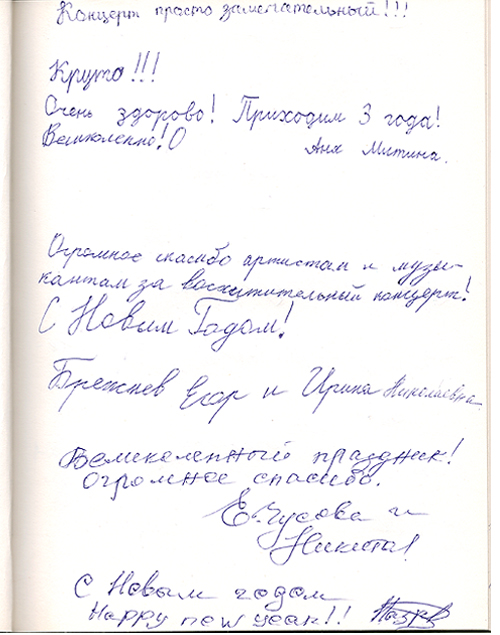 Концерт просто замечательный!!!
Круто!!!
Очень здорово! Приходим 3 года!
Великолепно!
Аня Митина.
Огромное спасибо артистам и музы-
кантам за восхитительный концерт!
С Новым Годом!
Брежнев Егор и Ирина Николаевна
Великолепный праздник!
Огромное спасибо.
Е. Чусова и
Никита!
С Новым годом
Happy new year!!